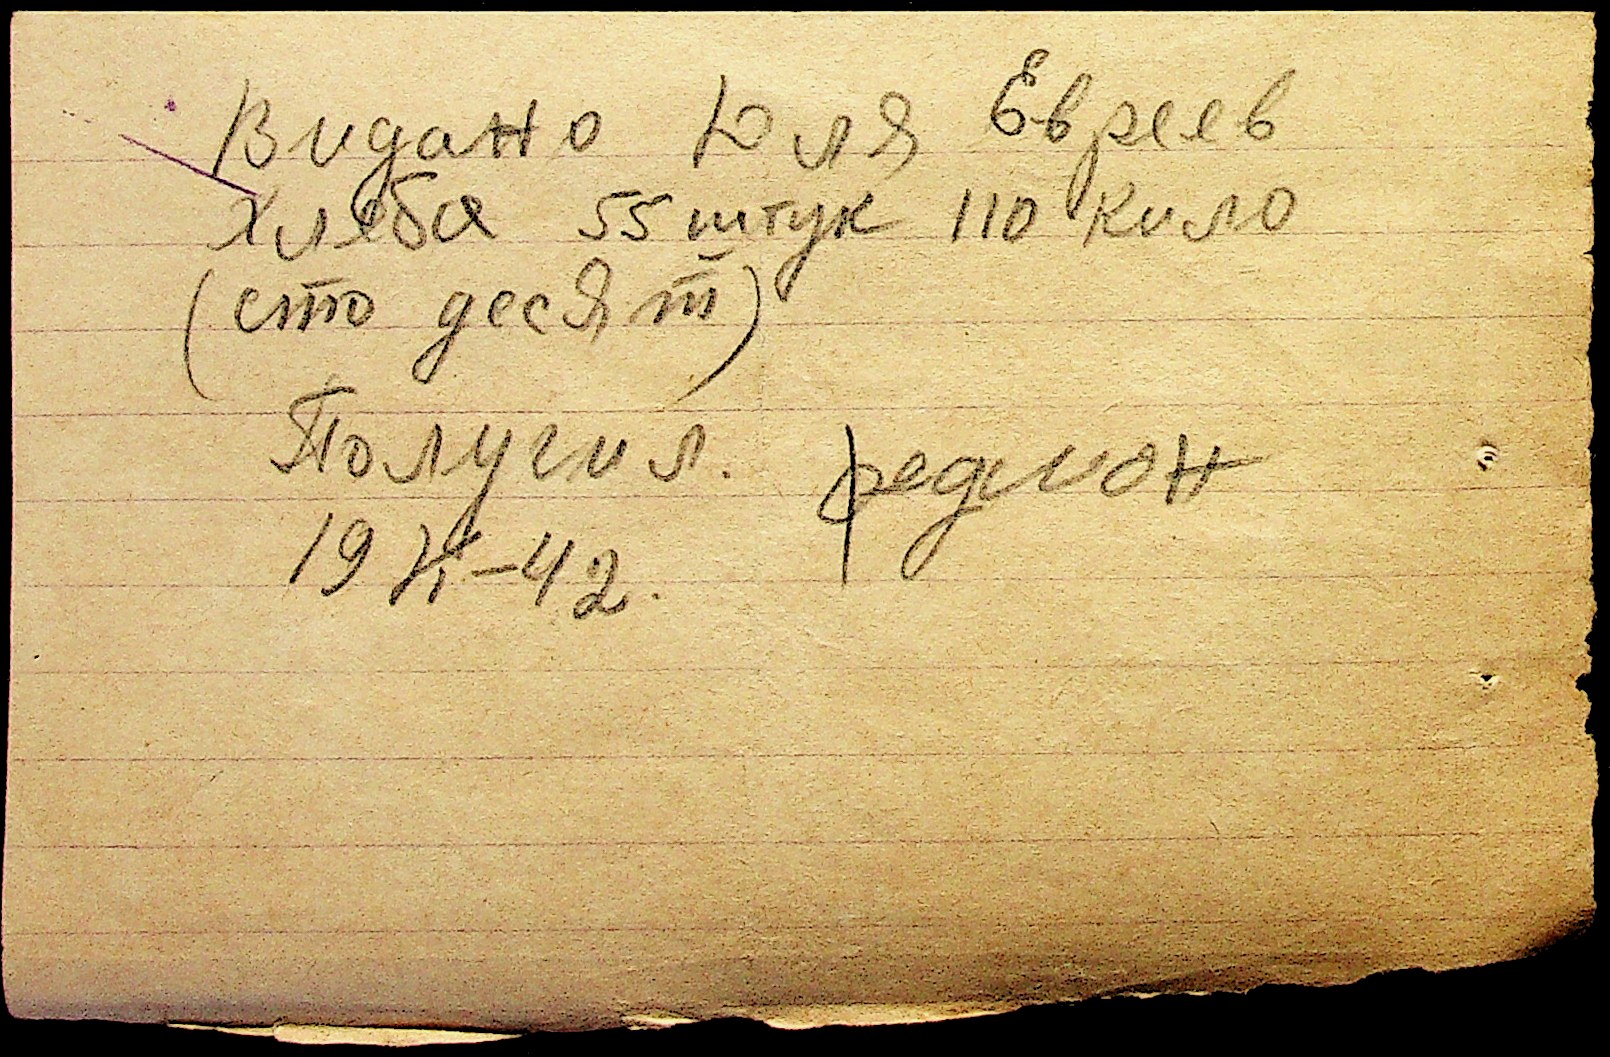 Видано Для Евреев
Хлеба 55 штук 110 кило
(сто десят)
Получил. Фридман
19 X-42.